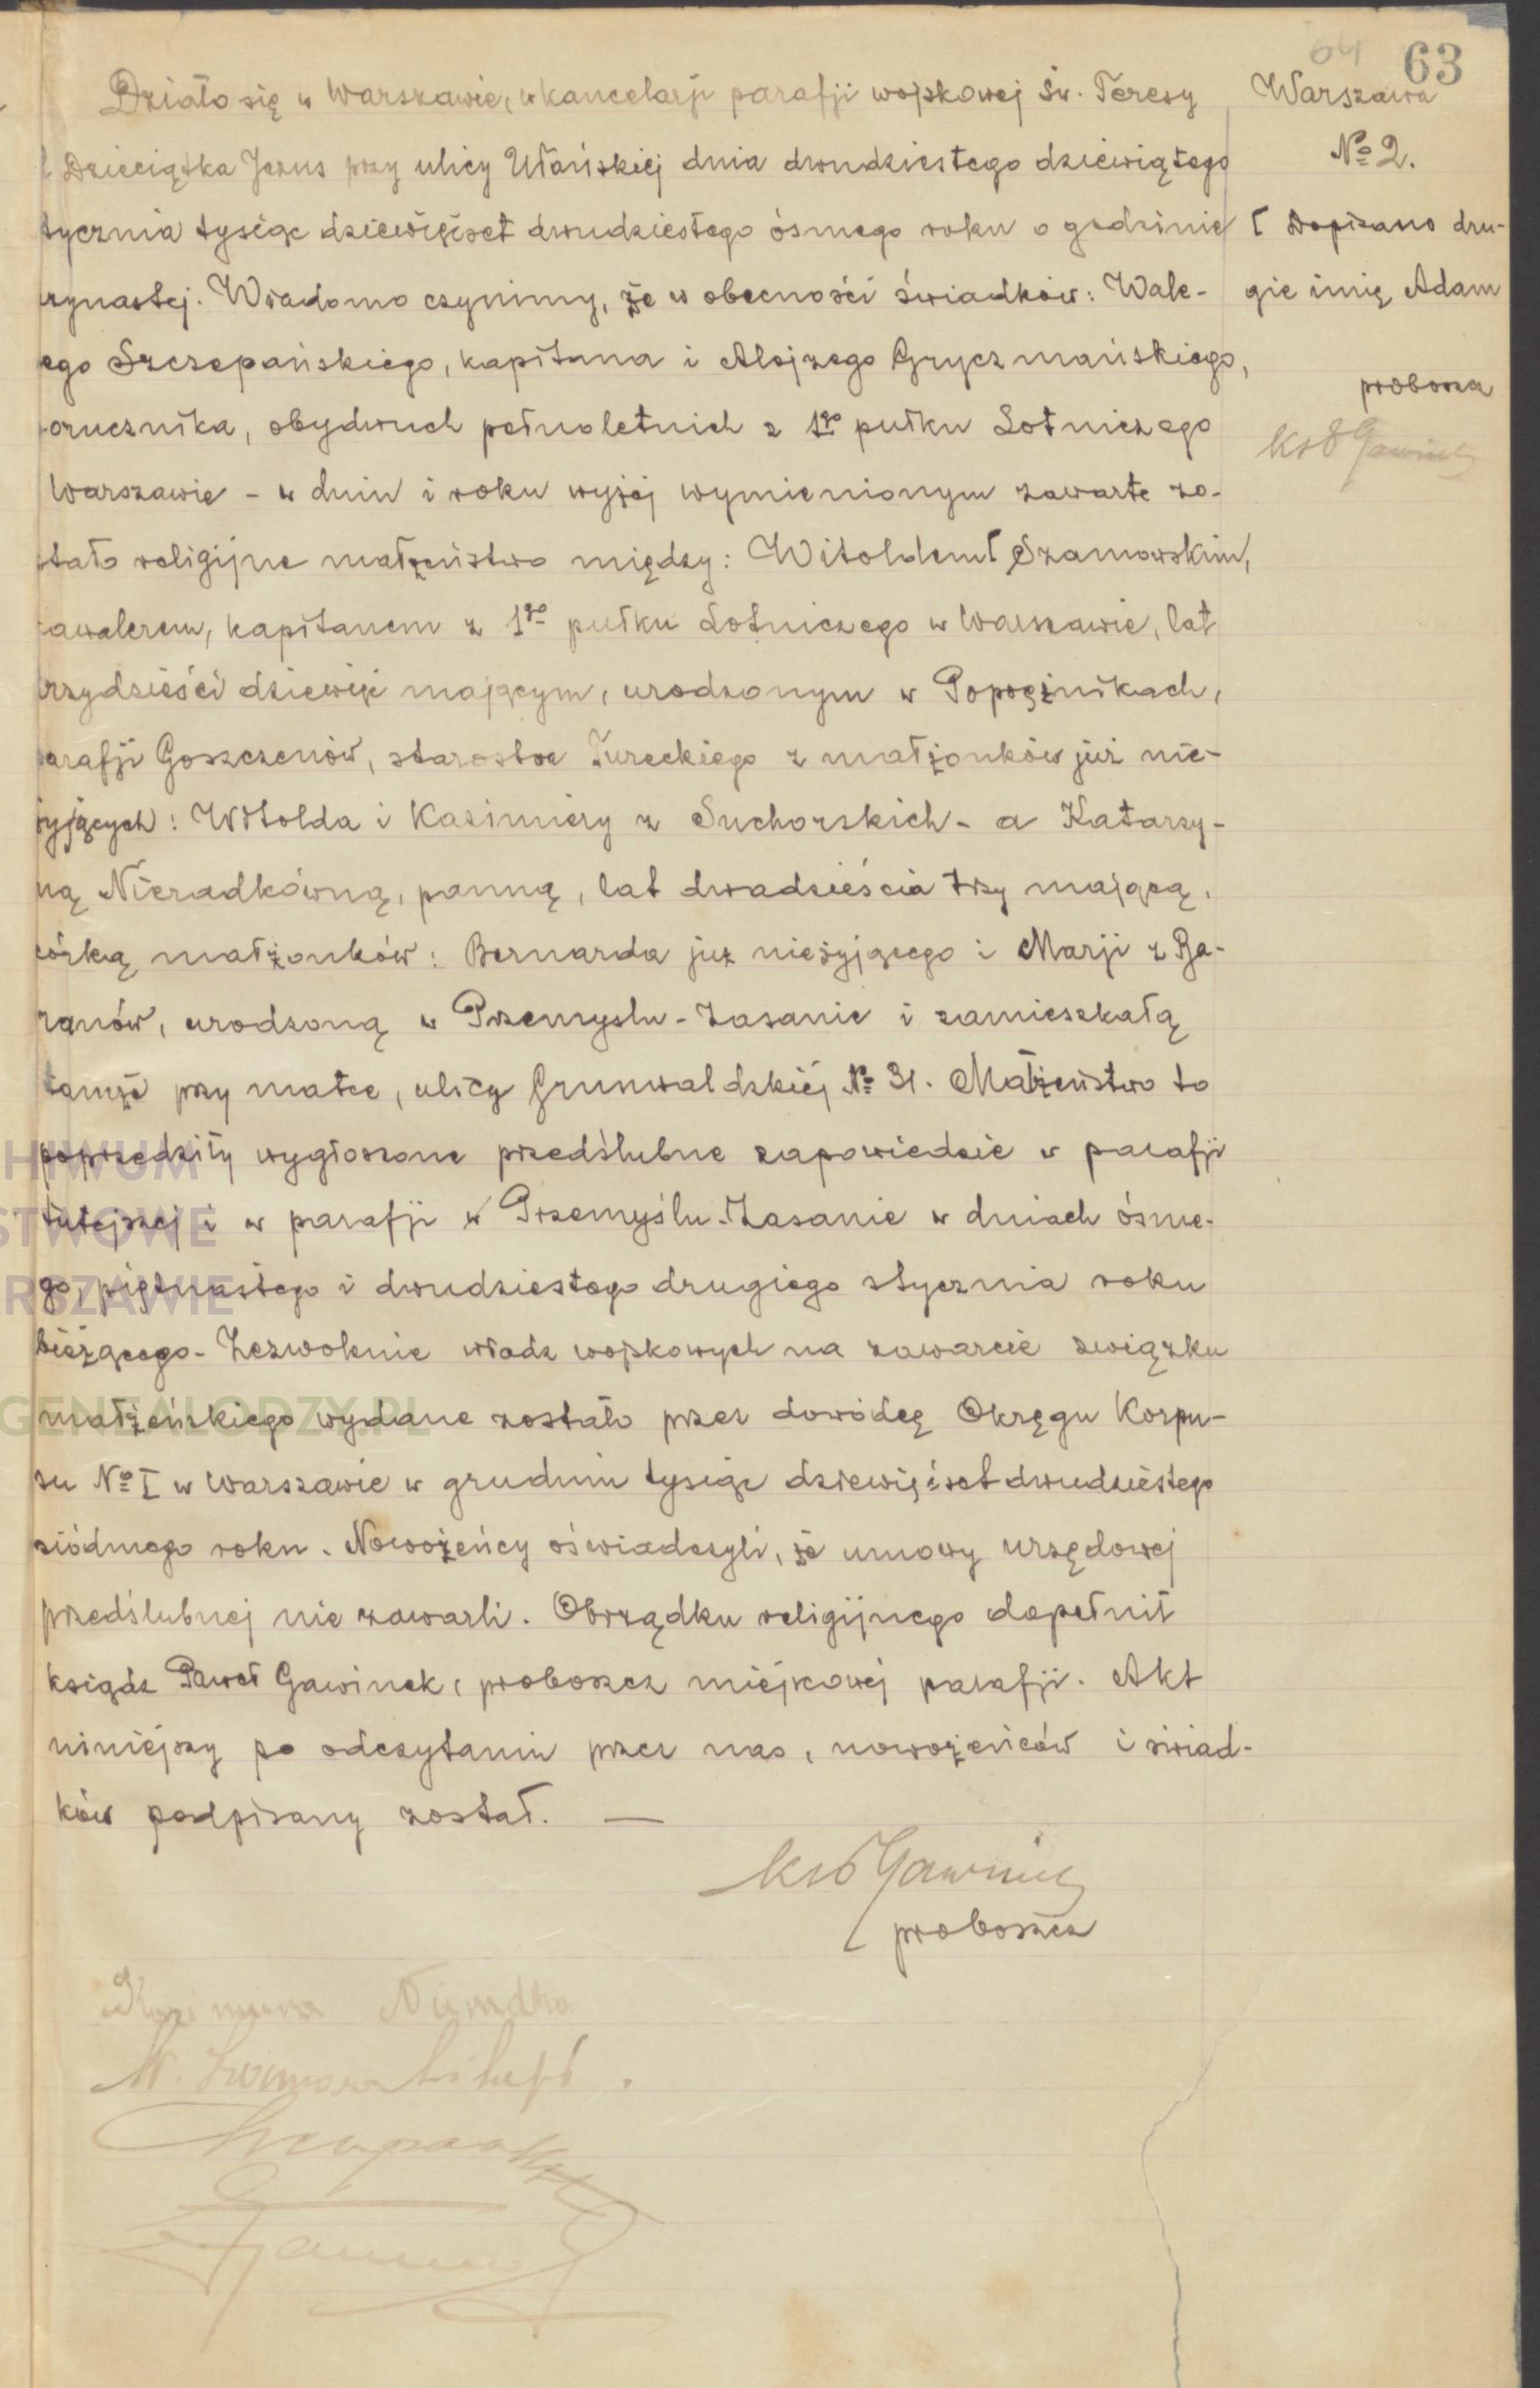 64 63
Warszawa
№ 2.
[ Dopisano dru-
gie imię Adam
proboszcz
Działo się w Warszawie, w kancelarji parafji wojskowej św. Teresy
Dzieciątka Jezus przy ulicy Ułańskiej dnia dwudziestego dziewiątego
tycznia tysiąc dziewięćset dwudziestego ósmego roku o godzinie
rynastej. Wiadomo czynimy, że w obecności świadków: Wale-
ego Szczepańskiego, kapitana i Alojzego Gryczmańskiego,
orucznika, obydwuch pełnoletnich z 1go pułku Lotniczego
Warszawie - w dniu i roku wyżej wymienionym zawarte zo-
stało religijne małżeństwo między: Witoldem [ Szamowskim,
awalerem, kapitanem z 1go pułku Lotniczego w Warszawie, lat
rzydzieści dziewięć mającym, urodzonym w Poprężnikach,
arafji Goszczenów, starostwa Tureckiego z małżonków już nie-
żyjących: Witolda i Kazimiery z Suchorskich - a Katarzy-
ną Nieradkówną, panną, lat dwadzieścia trzy mającą,
córką małżonków: Bernarda już nieżyjącego i Marji z Ba-
ranów, urodzoną w Przemyslu - Zasanie i zamieszkałą
tamże przy matce, ulicy Grunwaldzkiej № 31. Małżeństwo to
poprzedziły wygłoszone przedślubne zapowiedzie w parafji
tutejszej i w parafji w Przemyślu-Zasanie w dniach ósme-
go, piętnastego i dwudziestego drugiego stycznia roku
bieżącego - Zezwolenie władz wojskowych na zawarcie związku
małżeńskiego wydane zostało przez dowódcę Okręgu Korpu-
su № I w Warszawie w grudniu tysiąc dziewięćset dwudziestego
siódmego roku. Nowożeńcy oświadczyli, że umowy urzędowej
przedślubnej nie zawarli. Obrządku religijnego dopełnił
ksiądz Paweł Gawinek, proboszcz miejscowej parafji. Akt
niniejszy po odczytaniu przez nas, nowożeńców i świad-
ków podpisany został. —
proboszcz
HIWUM
STWOWE
RSZAWIE
GENEALODZY.PL